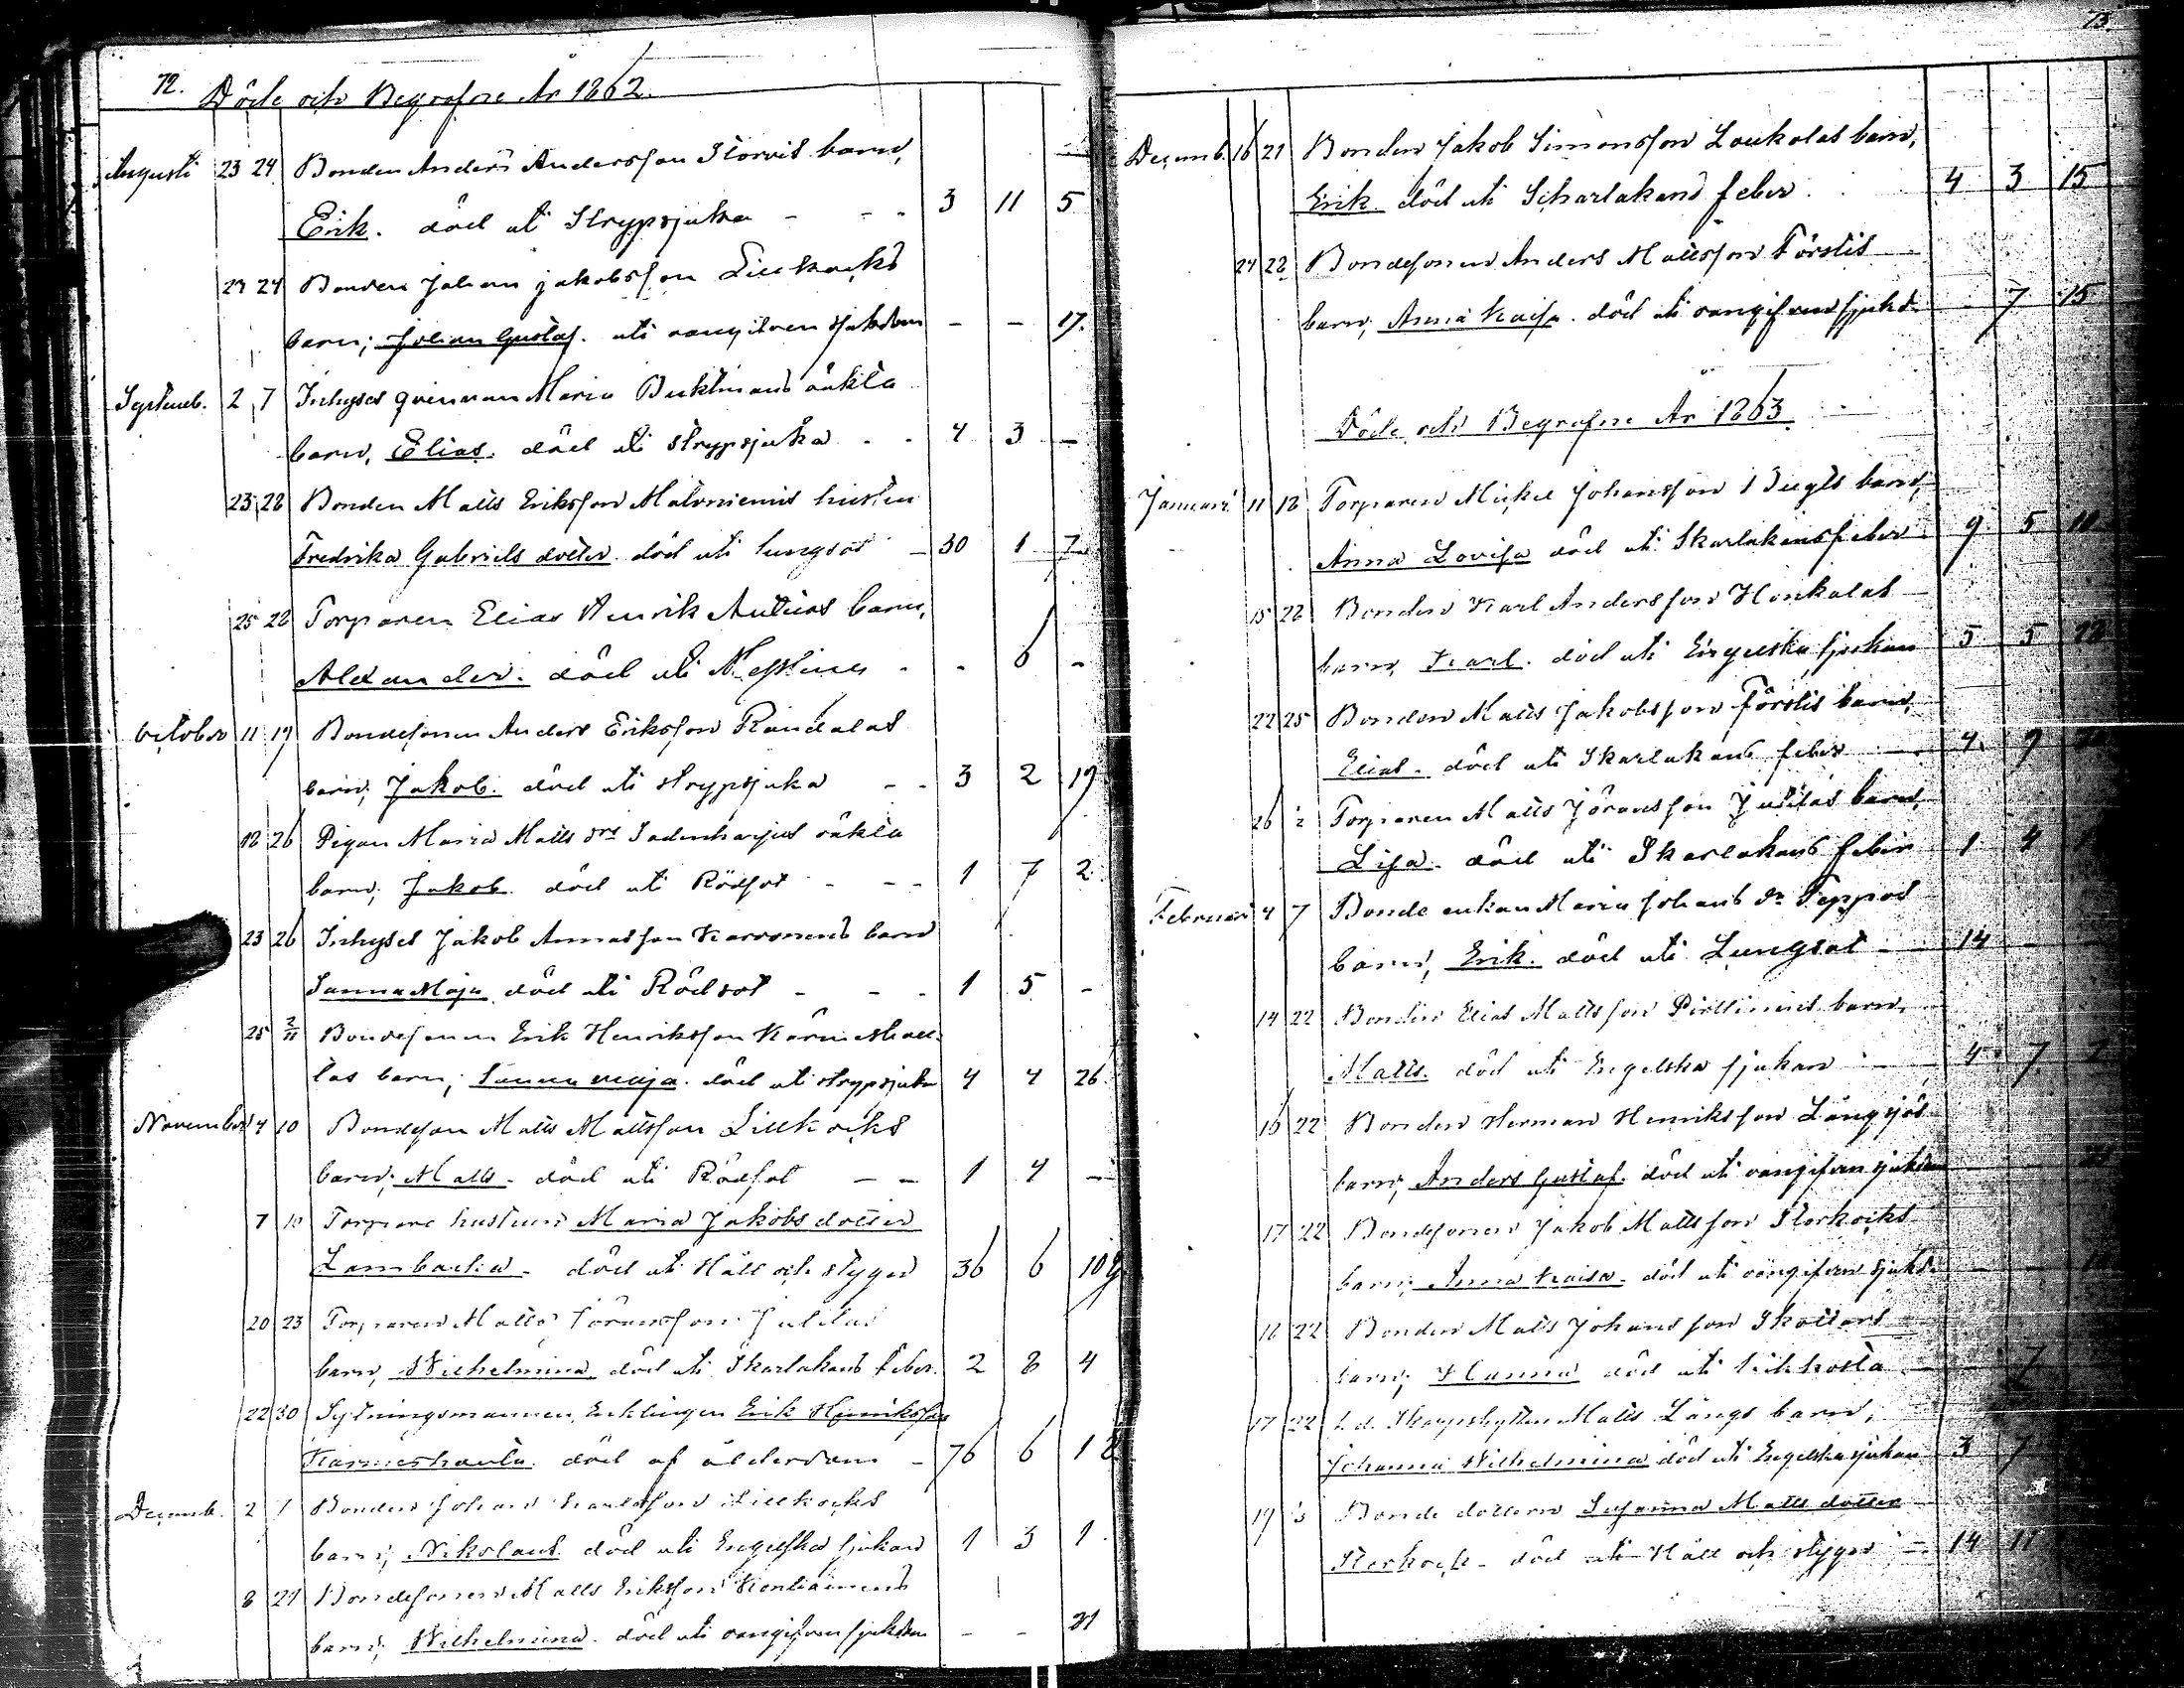 72. Döde och Begrafne År 1862.
Augusti 23 24 Bonden Anders Andersson Storvis barn,
Erik. död uti Strypsjuka - - - 3 11 5
23 24 Bonden Johan Jakobsson Lillkocks
barn; Johan Gustaf. uti oangifven sjukdom - - 17.
Septemb. 2 7 Inhyses qvinnan Maria oäkta
barn, Elias. död uti Strypsjuka - - 4 3 -
23 28 Bonden Matts Eriksson hustru
Fredrika Gabriels dotter död uti lungsot - 30 1 7
25 28 Torparen Elias Henrik barn,
Alexander. död uti Messling - - 6 -
October 11 19 Bondesonen Anders Eriksson Randalas
barn; Jakob. död uti strypsjuka - - 3 2 19
18 26 Pigan Maria Matts dr oäkta
barn; Jakob. död uti Rödsot - - - 1 7 2
23 26 Inhyses Jakob Karvonens barn
Sanna Maja död uti Rödsot - - - 1 5 -
25 2/11 Bondesonen Erik Henriksson
las barn; Sanna maja. död uti strypsjuka 4 4 26.
November 4 10 Bondeson Matts Mattsson Lillkocks
barn; Matts. död uti Rödsot - - 1 4 -
7 10 Torpare hustrun Maria Jakobs dotter
död uti Håll och styng 36 6 10
20 23 Torparen Matts Göransson Jussilas
barn, Wilhelmina. död uti Skarlakans feber. 2 8 4
22 30 Sytningsmannen, Enklingen Erik Henriksson
död af ålderdom - 76 6 1
Decemb. 2 7 Bonden Johan Lillkocks
barn; Nikolaus. död uti Engelska sjukan 1 3 1.
8 21 Bondesonen Matts Eriksson
barn; Wilhelmina. död uti oangifven sjukdom - - 21
73.
Decemb. 16 21 Bonden Jakob Simonsson Loukolas barn,
Erik. död uti Scharlakans feber. 4 3 15
24 28 Bondesonen Anders Mattsson Förstis
barn; Anna Kajsa. död uti oangifven sjukd. 7 15
Döde och Begrafne År 1863
Januari 11 18 Torparen Mickel Johansson barn,
Anna Lovisa död uti Skarlakansfeber 9 5
15 22 Bonden Karl Andersson Honkalas
barn, Karl. död uti Engelska sjukan 5 5 22
22 25 Bonden Matts Jakobsson Förstis barn,
Elias. död uti Skarlakans feber 4
26 Torparen Matts Göransson Jussilas barn,
Lisa. död uti Skarlakans feber 1 4
Februari 4 7 Bonde enkan Maria Johans dr Seppos
barn, Erik. död uti Lungsot 14
14 22 Bonden Elias Mattsson barn,
Matts. död uti Engelska sjukan 4 7
16 22 Bonden Herman Henriksson Långsjös
barn; Anders Gustaf. död uti oangifven sjukdom
17 22 Bondesonen Jakob Mattsson Storkocks
barn; Anna Kaisa. död uti oangifven sjukd.
16 22 Bonden Matts Johansson Skottars
barn; Hanna död uti kikhosta 7
17 22 f. d. Skarpskytten Matts Långs barn,
Johanna Wilhelmina död uti Engelska sjukan 3 7
19 Bonde dottern Susanna Matts dotter
Storkock. död uti Håll och styng 14 11